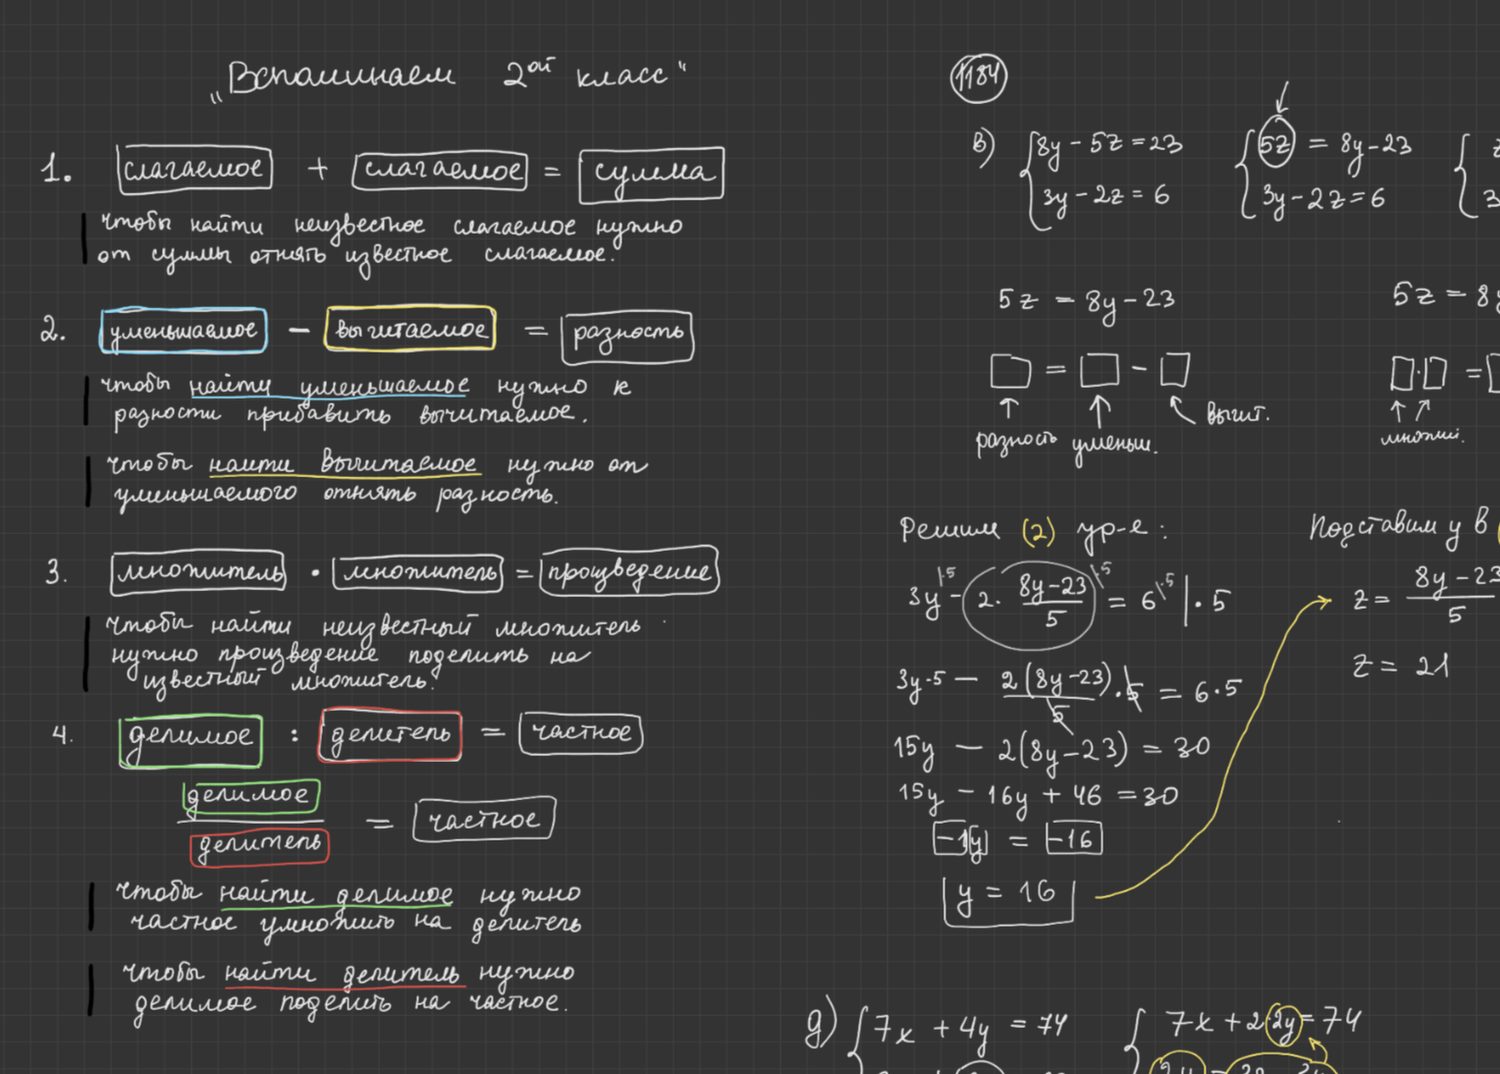 „Вспоминаем 2ой класс"
1. слагаемое + слагаемое = сумма
чтобы найти неизвестное слагаемое нужно
от суммы отнять известное слагаемое.
2. уменьшаемое - вычитаемое = разность
чтобы найти уменьшаемое нужно к
разности прибавить вычитаемое.
чтобы найти вычитаемое нужно от
уменьшаемого отнять разность.
3. множитель · множитель = произведение
чтобы найти неизвестный множитель
нужно произведение поделить на
известный множитель.
4. делимое : делитель = частное
делимое
делитель
= частное
чтобы найти делимое нужно
частное умножить на делитель
чтобы найти делитель нужно
делимое поделить на частное.
1184
в) 8y - 5z = 23
3y - 2z = 6
5z = 8y - 23
3y - 2z = 6
z
3
5z = 8y - 23
□ = □ - □
разность уменьш. вычит.
5z = 8y
□·□ = □
множит.
Решим (2) ур-е:
3y|·5 - 2· (8y-23)/5 |·5 = 6|·5 | · 5
3y·5 - 2(8y-23)/5 · 5 = 6·5
15y - 2(8y-23) = 30
15y - 16y + 46 = 30
-1y = -16
y = 16
Подставим y в (
z = (8y-23)/5
z = 21
д) 7x + 4y = 74
7x + 2·2y = 74